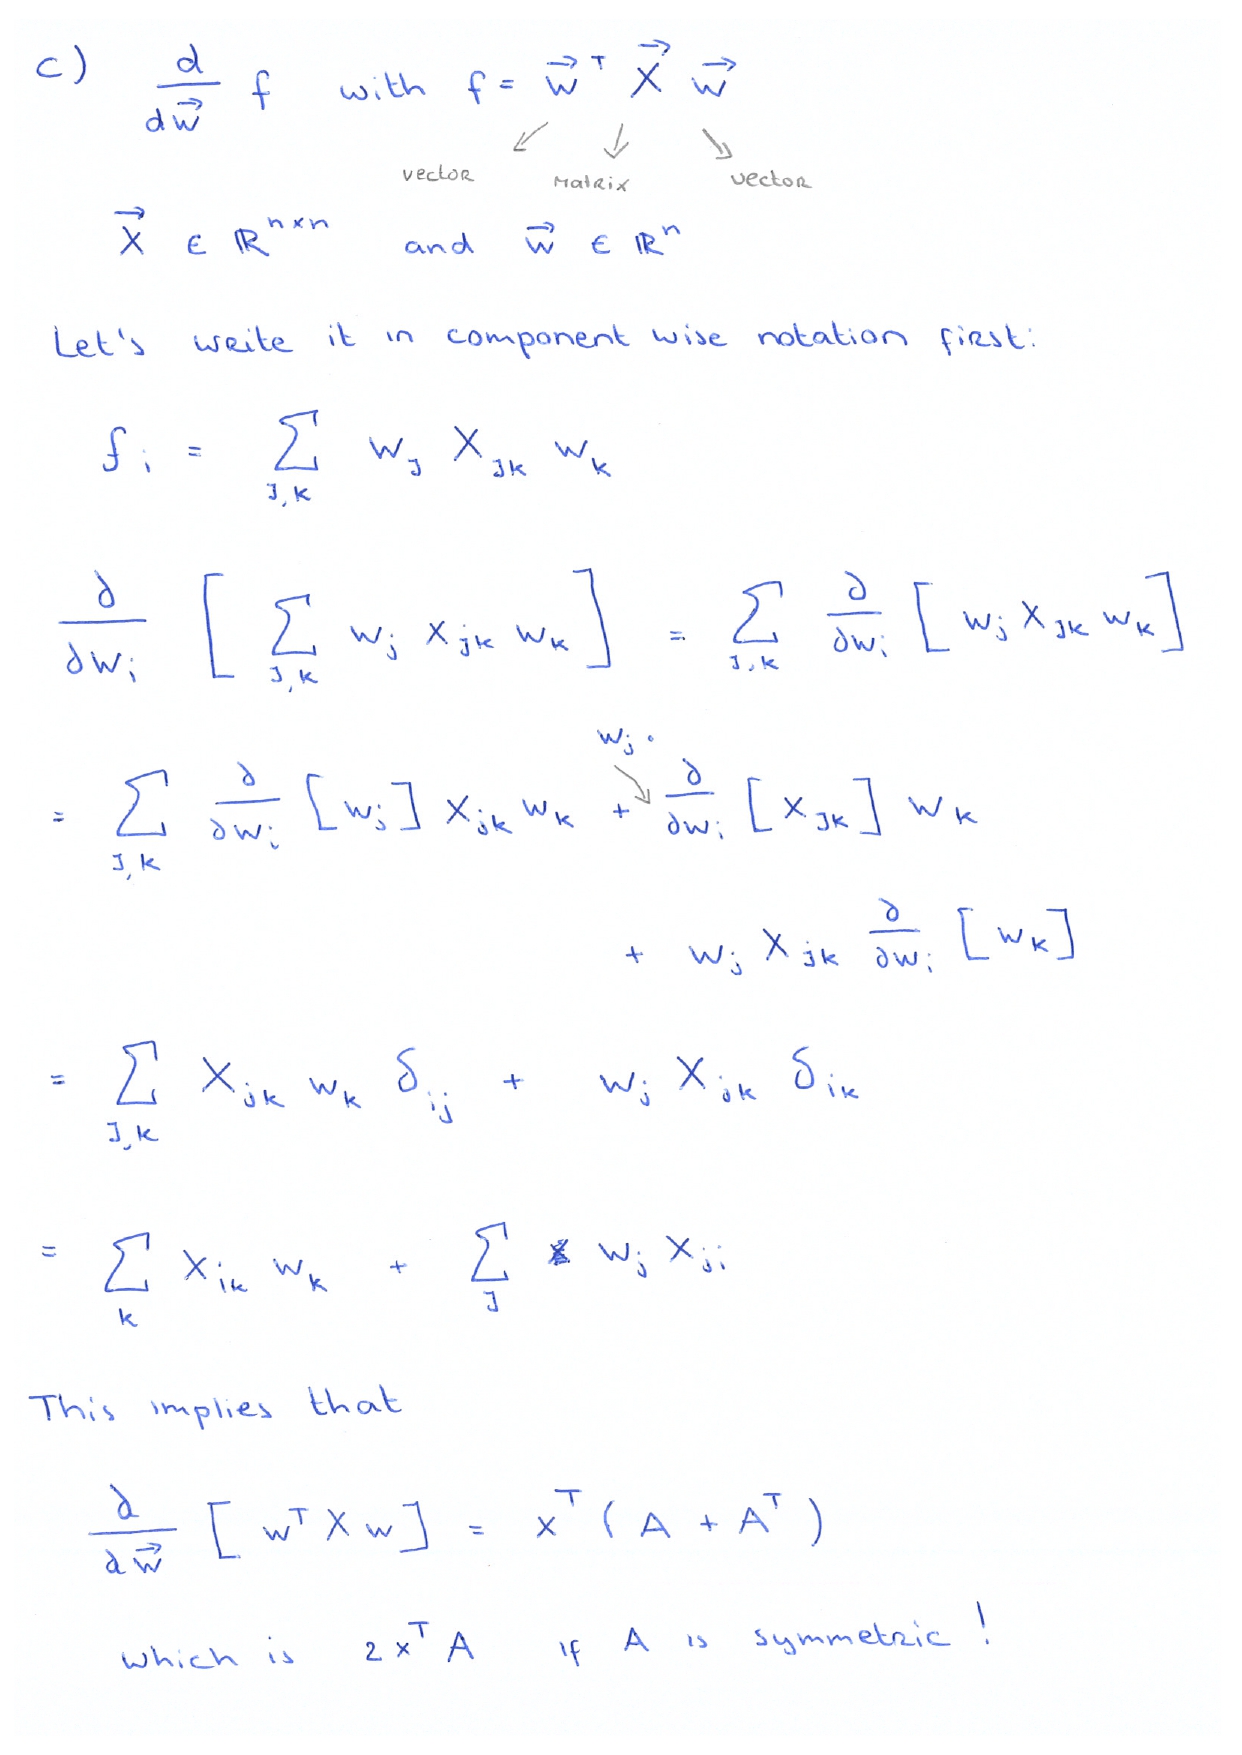 c) d/dw⃗ f with f = w⃗ᵀ X⃗ w⃗
vector Matrix vector
X⃗ ∈ ℝⁿˣⁿ and w⃗ ∈ ℝⁿ
Let's write it in component wise notation first:
f_i = Σ_{j,k} w_j X_{jk} w_k
∂/∂w_i [ Σ_{j,k} w_j X_{jk} w_k ] = Σ_{j,k} ∂/∂w_i [ w_j X_{jk} w_k ]
w_j ·
= Σ_{j,k} ∂/∂w_i [w_j] X_{jk} w_k + ∂/∂w_i [X_{jk}] w_k
+ w_j X_{jk} ∂/∂w_i [w_k]
= Σ_{j,k} X_{jk} w_k δ_{ij} + w_j X_{jk} δ_{ik}
= Σ_k X_{ik} w_k + Σ_j w_j X_{ji}
This implies that
∂/∂w⃗ [ wᵀ X w ] = xᵀ ( A + Aᵀ )
which is 2 xᵀ A if A is symmetric!